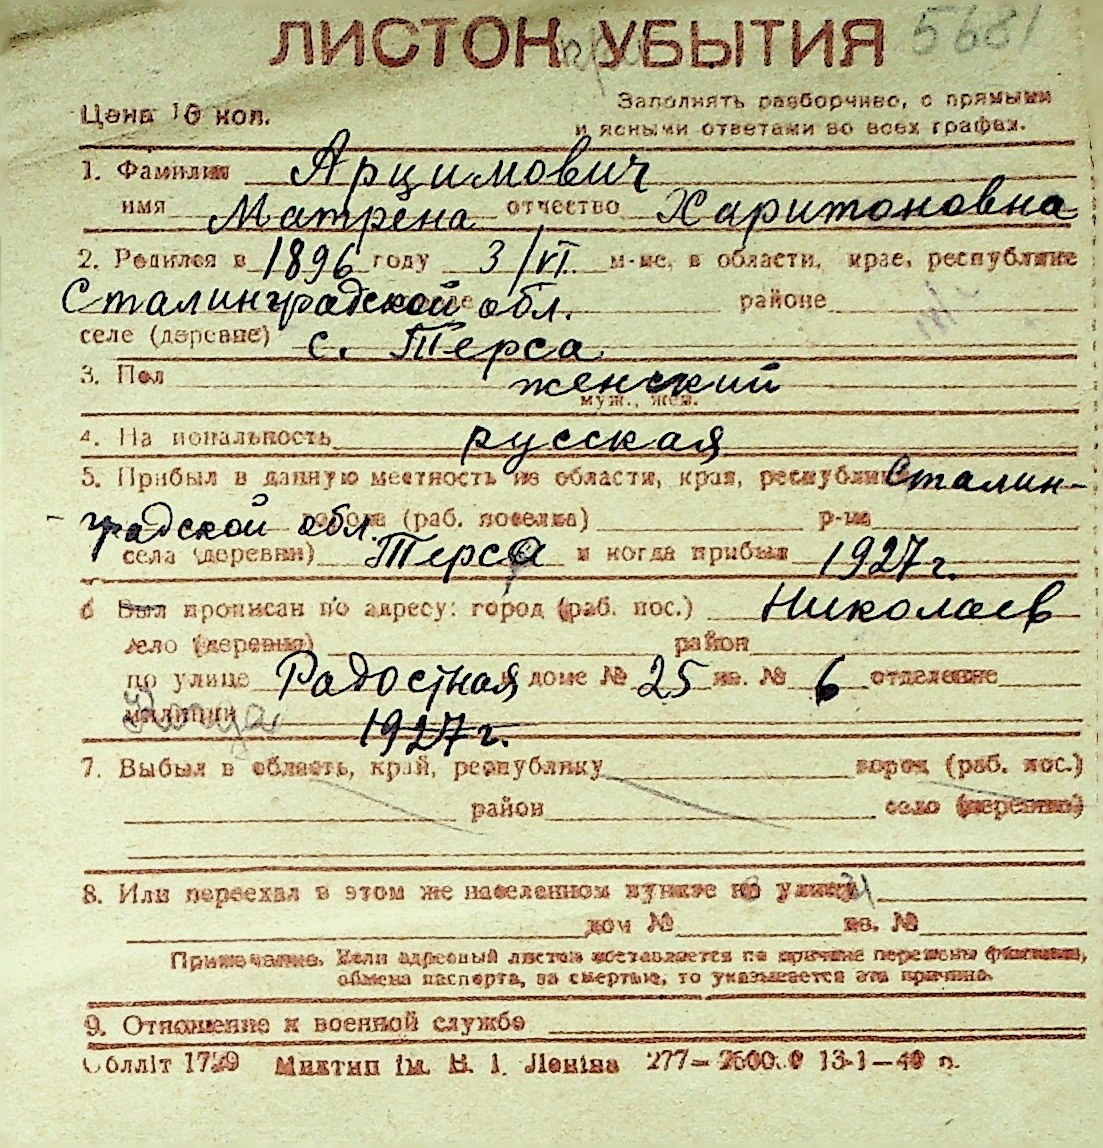 ЛИСТОК УБЫТИЯ 5681
Цена 10 коп.
Заполнять разборчиво, с прямыми
и ясными ответами во всех графах.
1. Фамилия Арцимович
имя Матрена отчество Харитоновна
2. Родился в 1896 году 3/VI м-це, в области, крае, республике
Сталинградской обл. районе
селе (деревне) с. Терса
3. Пол женский
муж., жен.
4. Национальность русская
5. Прибыл в данную местность из области, края, республики Сталин-
-градской обл. города (раб. поселка) р-на
села (деревни) Терса и когда прибыл 1927 г.
6 Был прописан по адресу: город (раб. пос.) Николаев
село (деревня) район
по улице Радостная в доме № 25 кв. № 6 отделение
милиции Когда 1927 г.
7. Выбыл в область, край, республику город (раб. пос.)
район село (деревню)
8. Или переехал в этом же населенном пункте на улицу
дом № кв. №
Примечание. Если адресный листок составляется по причине перемены фамилии,
обмена паспорта, за смертью, то указывается эта причина.
9. Отношение к военной службе
Облліт 1729 Миктип ім. В. І. Леніна 277— 13-1—40 р.